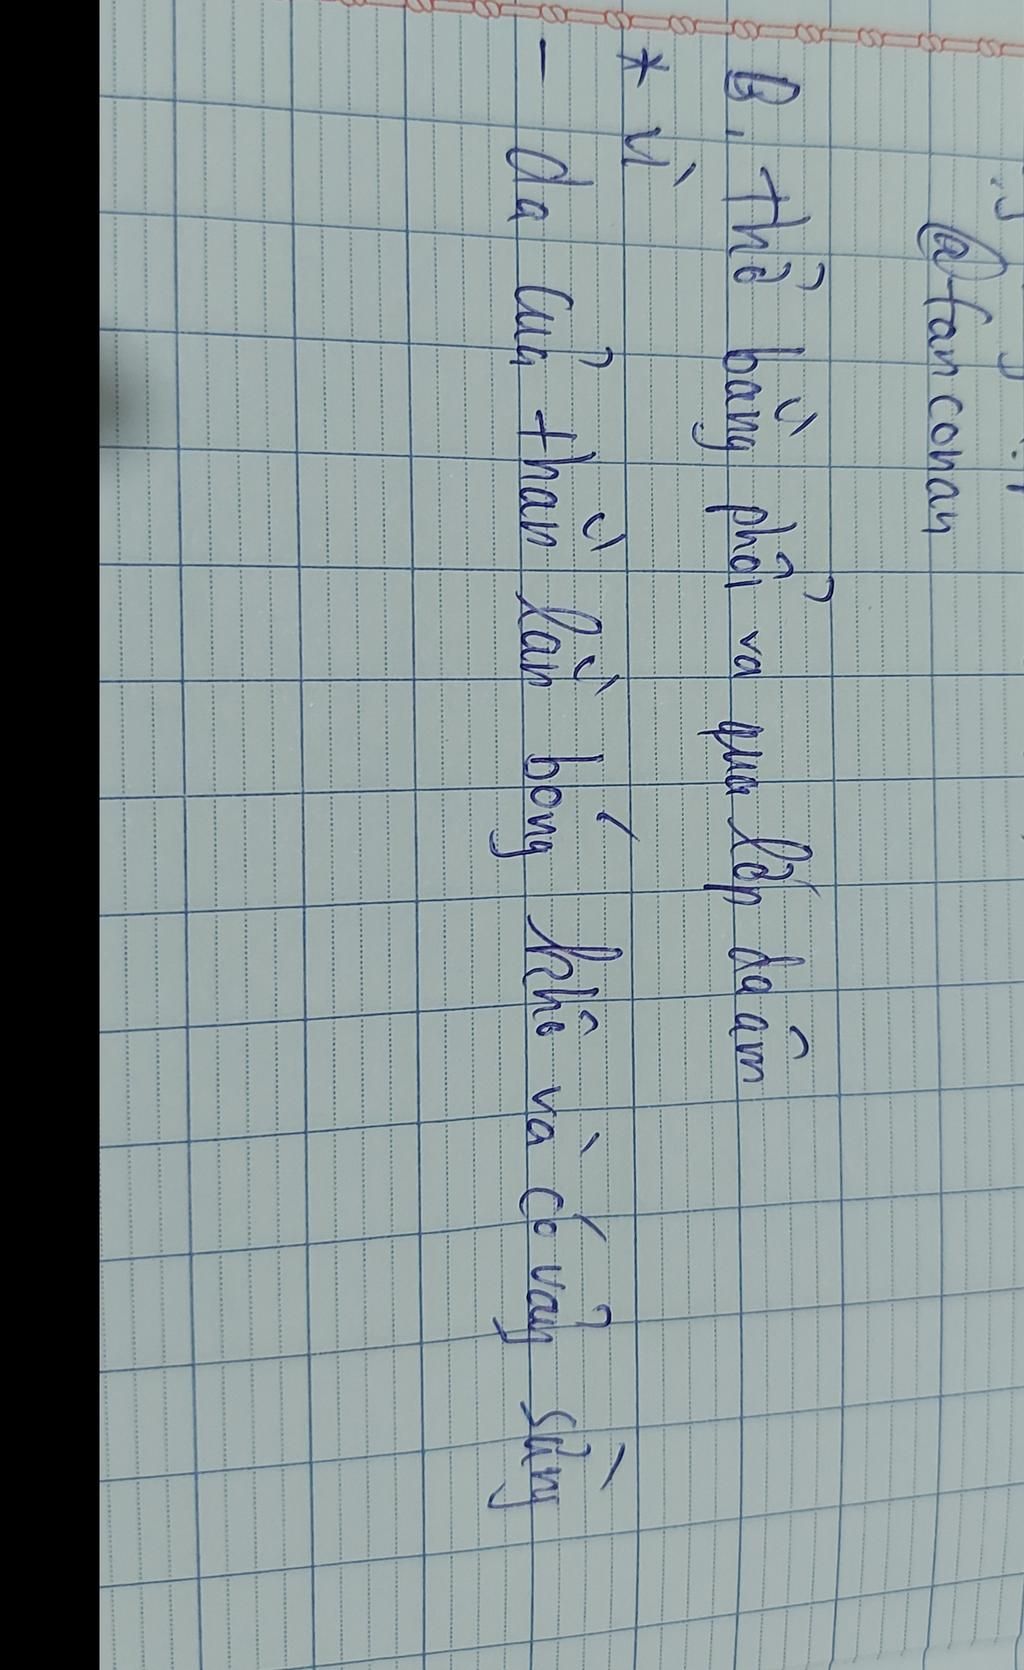 @fanconan
B. Thở bằng phổi và qua lớp da ẩm
* Vì
- da của thằn lằn bóng khô và có vảy sừng